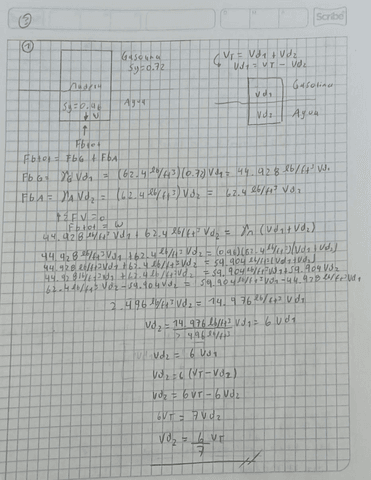 Scribe
①
Gasolina
Sg=0.72
Madera
Sg=0.96
Agua
W
Fbtot
VT = Vd1 + Vd2
Vd1 = VT - Vd2
Vd1
Gasolina
Vd2
Agua
Fbtot = FbG + FbA
FbG = γG Vd1 = (62.4 lb/ft³)(0.72) Vd1 = 44.928 lb/ft³ Vd1
FbA = γA Vd2 = (62.4 lb/ft³) Vd2 = 62.4 lb/ft³ Vd2
↑ΣFV = 0
Fbtot = W
44.928 lb/ft³ Vd1 + 62.4 lb/ft³ Vd2 = γm (Vd1+Vd2)
44.928 lb/ft³ Vd1 + 62.4 lb/ft³ Vd2 = (0.96)(62.4 lb/ft³)(Vd1+Vd2)
44.928 lb/ft³ Vd1 + 62.4 lb/ft³ Vd2 = 59.904 lb/ft³ (Vd1+Vd2)
44.928 lb/ft³ Vd1 + 62.4 lb/ft³ Vd2 = 59.904 lb/ft³ Vd1 + 59.904 Vd2
62.4 lb/ft³ Vd2 - 59.904 Vd2 = 59.904 lb/ft³ Vd1 - 44.928 lb/ft³ Vd1
2.496 lb/ft³ Vd2 = 14.976 lb/ft³ Vd1
Vd2 = 14.976 lb/ft³ / 2.496 lb/ft³ Vd1 = 6 Vd1
Vd2 = 6 Vd1
Vd2 = 6 (VT - Vd2)
Vd2 = 6VT - 6Vd2
6VT = 7Vd2
Vd2 = 6/7 VT